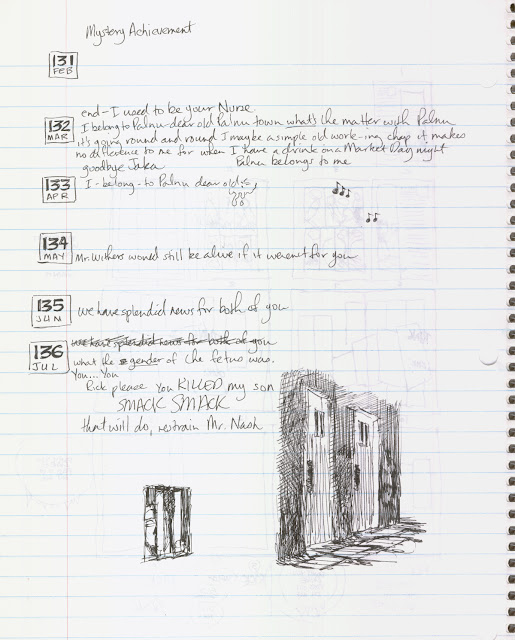 Mystery Achievement
131
FEB
end - I used to be your Nurse
132
MAR
I belong to Palnu dear old Palnu town what's the matter with Palnu
it's going round and round I maybe a simple old work-ing chap it makes
no difference to me for when I have a drink on a Market Day night
goodbye Jaka Palnu belongs to me
133
APR
I - belong - to Palnu dear old
134
MAY
Mr. Withers would still be alive if it weren't for you
135
JUN
we have splendid news for both of you
136
JUL
we have splendid news for both of you
what the gender of the fetus was.
You... You
Rick please You KILLED my son
SMACK SMACK
that will do, restrain Mr. Nash